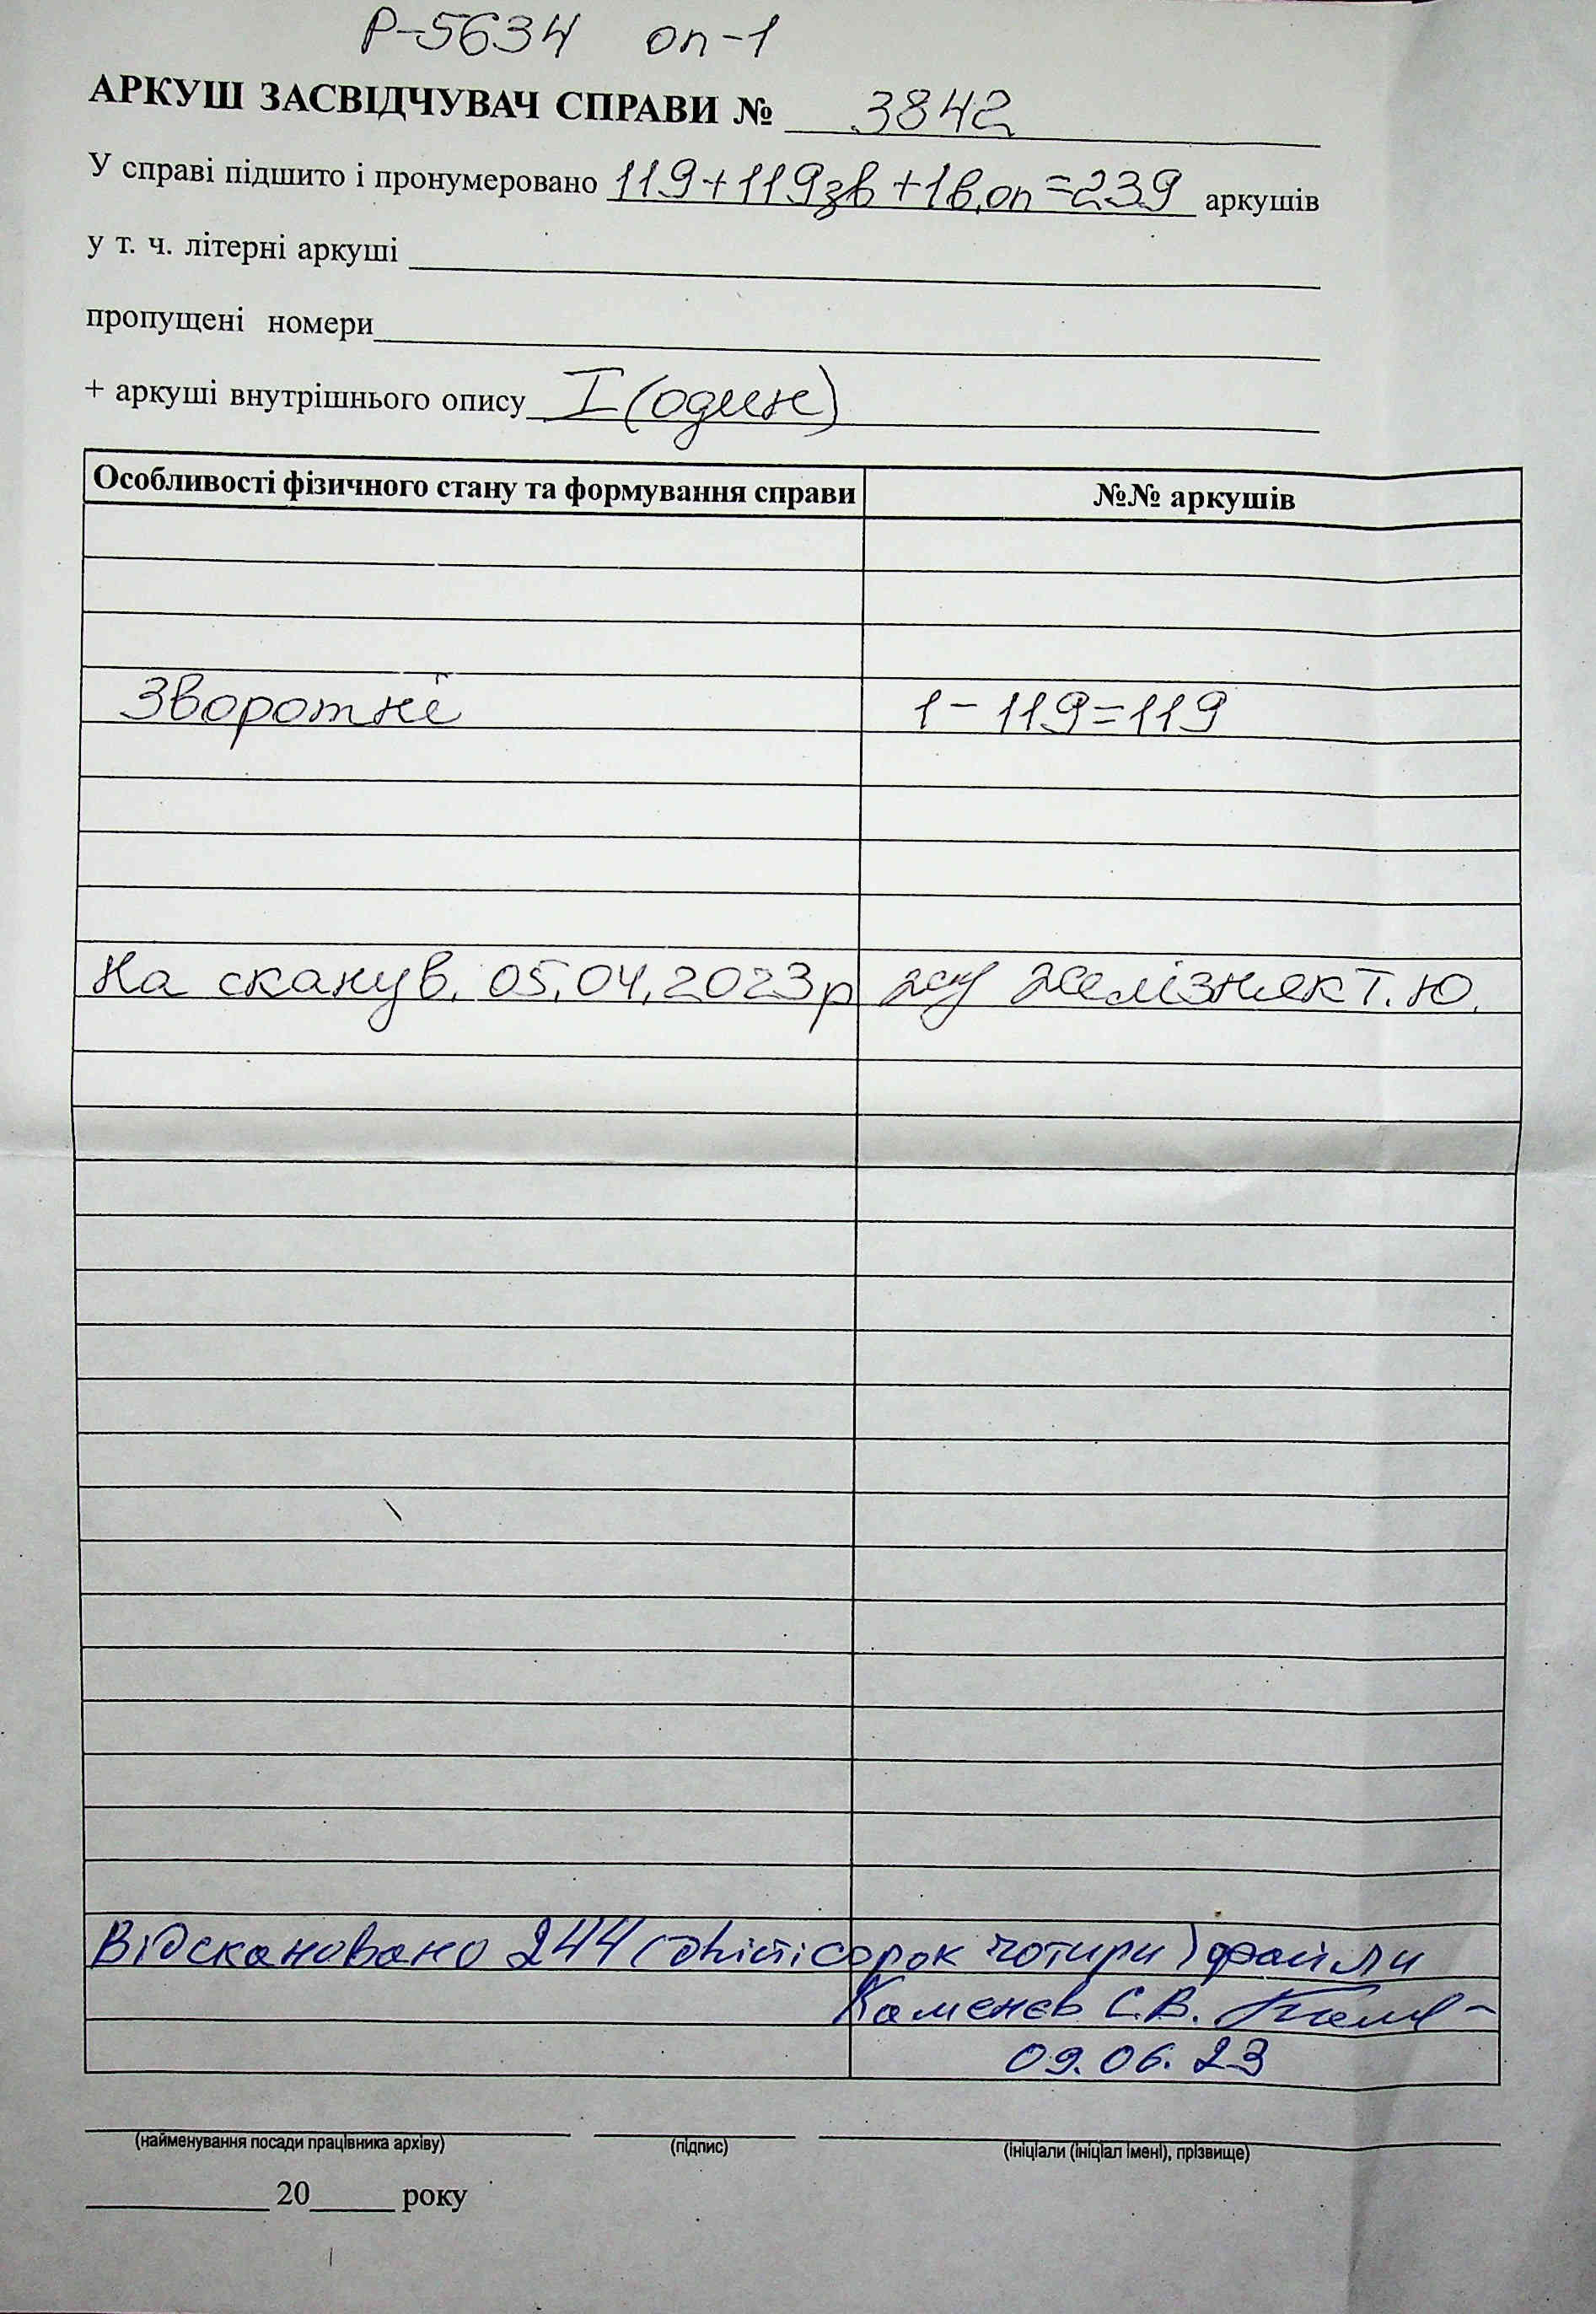 Р-5634 оп-1
АРКУШ ЗАСВІДЧУВАЧ СПРАВИ № 3842
У справі підшито і пронумеровано 119+119зв+1в.оп=239 аркушів
у т. ч. літерні аркуші
пропущені номери
+ аркуші внутрішнього опису I (один)
Особливості фізичного стану та формування справи №№ аркушів
Зворотні 1-119=119
На сканув. 05.04.2023р Желізняк Т.Ю.
Відскановано 244 (двісті сорок чотири) файли
Каменєв С.В.
09.06.23
(найменування посади працівника архіву) (підпис) (ініціали (ініціал імені), прізвище)
20 року